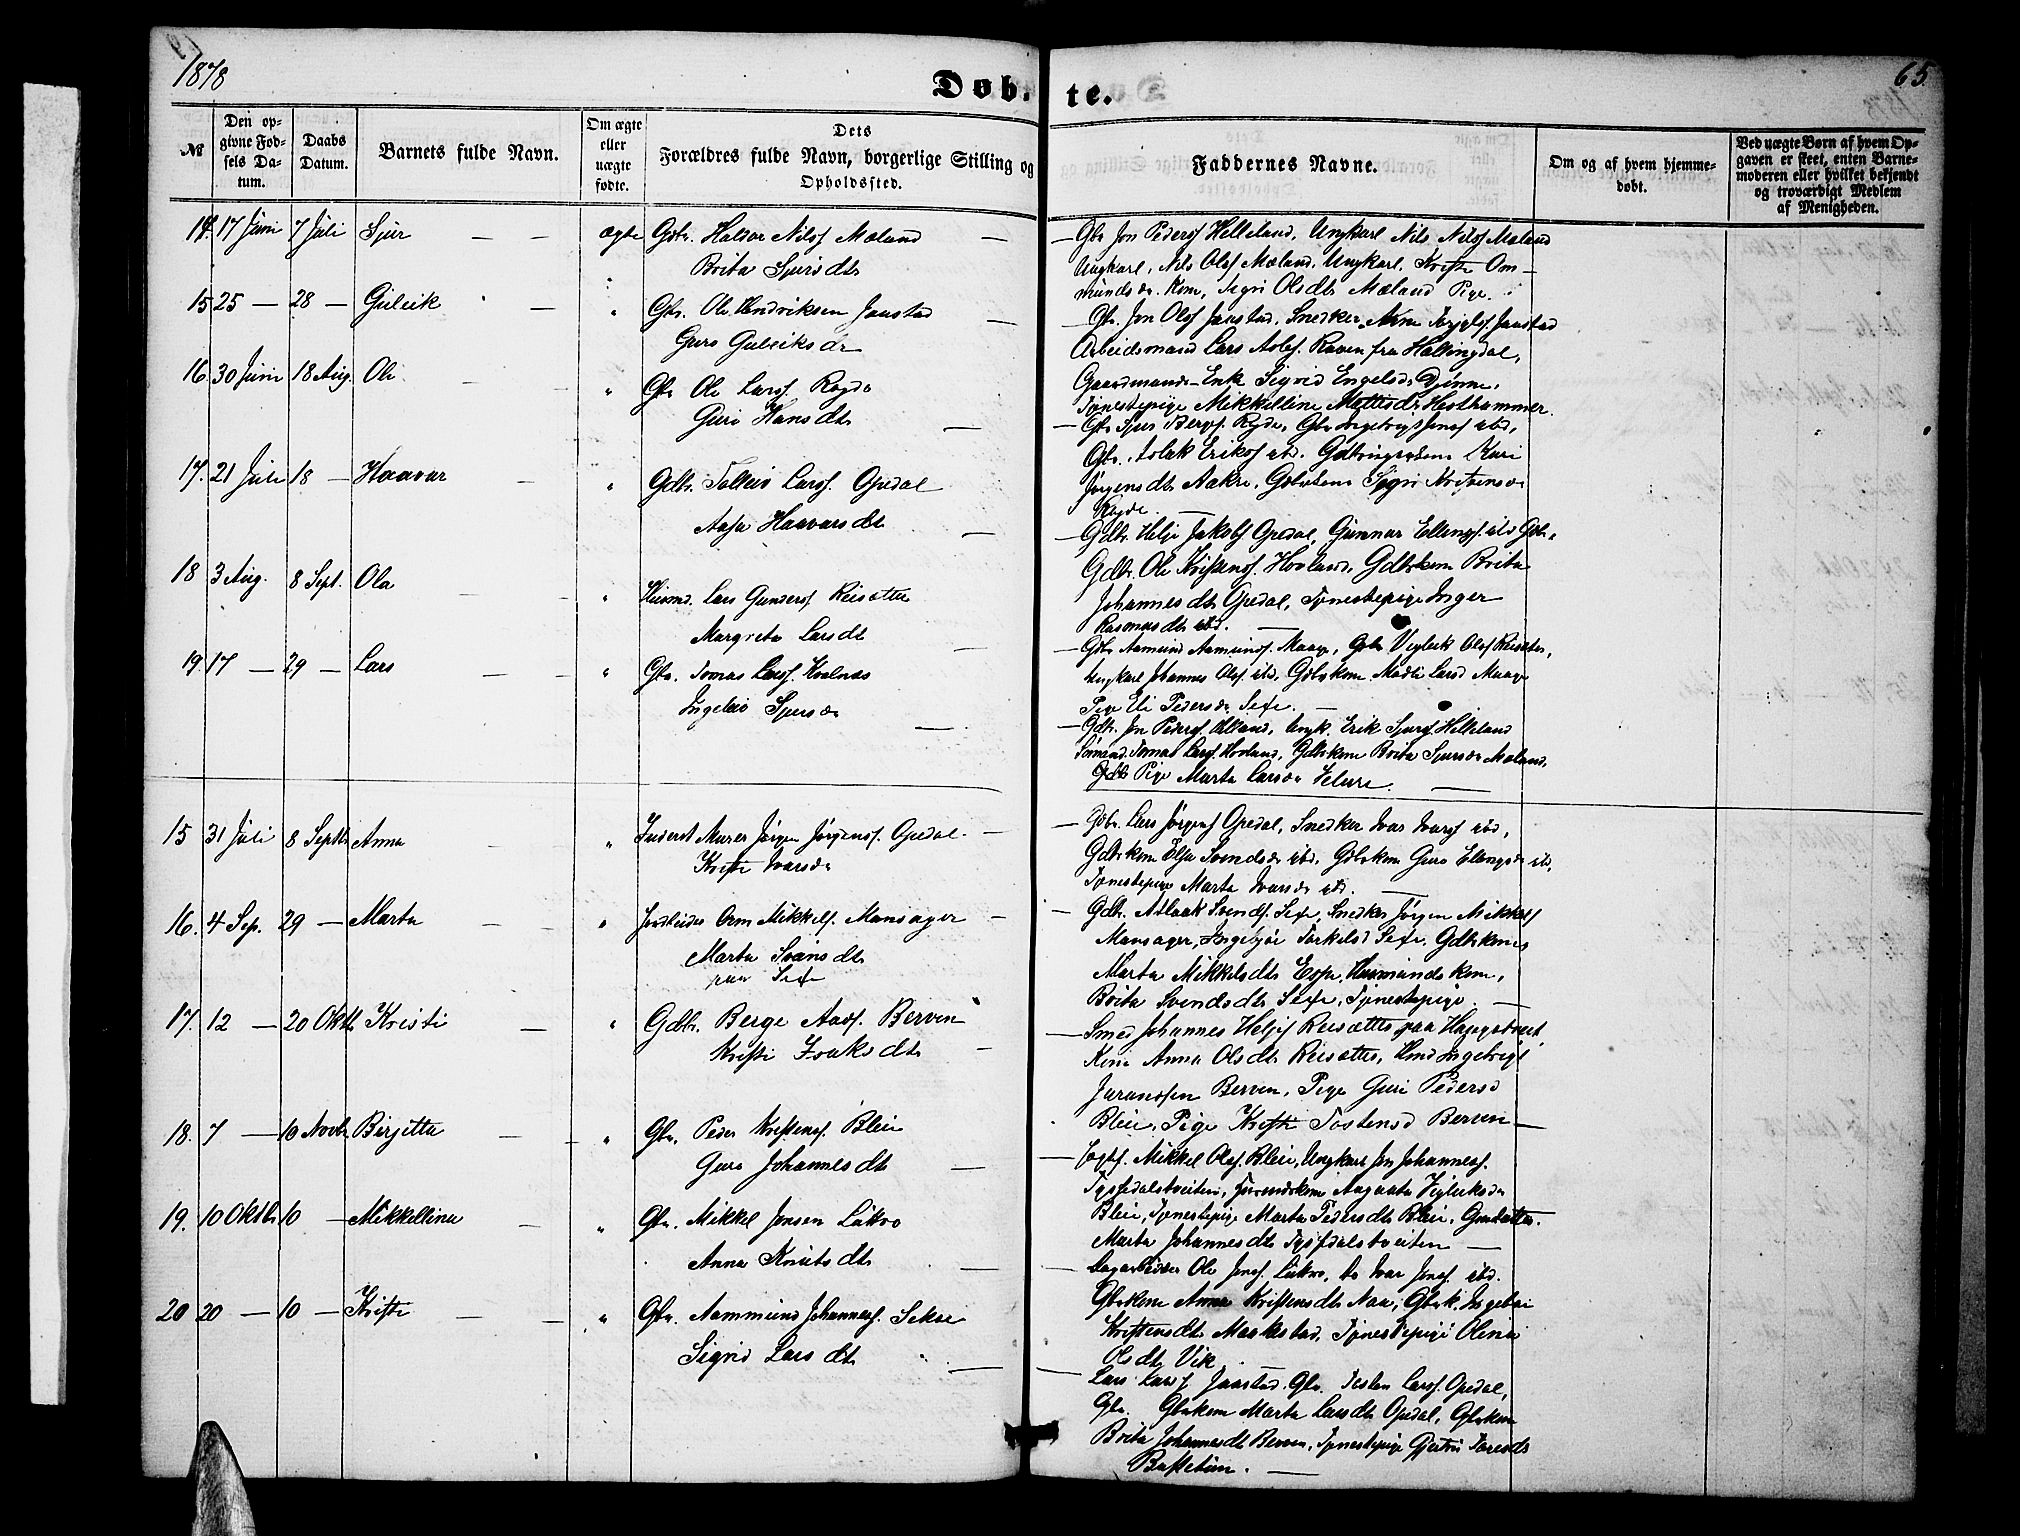 1878
Døb-
te.
65.
№
Den op-
givne Fød-
sels Da-
tum.
Daabs
Datum.
Barnets fulde Navn.
Om ægte
eller
uægte
fødte.
Dets
Forældres fulde Navn, borgerlige Stilling og
Opholdssted.
Faddernes Navne.
Om og af hvem hjemme-
døbt.
Ved uægte Børn af hvem Op-
gaven er skeet, enten Barne-
moderen eller hvilket bekjendt
og troværdigt Medlem
af Menigheden.
14. 17 Juni 7 Juli Sjur — — ægte Gdbr. Haldor Nilss. Mæland —
Brita Sjursdtr
— Gbr Jon Peders. Helleland, Ungkarl Nils Nilss. Mæland
Ungkarl, Nils Olss. Mæland, Ungkarl, Kristi Om-
mundsdr. Kone, Sigri Olsdtr Mæland Pige.
15 25 — 28 — Guleik — " Gbr. Ole Hendriksen Jaastad —
Guro Guleiksdr
— Gbr. Jon Olss. Jaastad, Snedker Arne Torjelss. Jaastad
Arbeidsmand Lars Aslss. Raven fra Hallingdal,
Gaardmands-Enke Sigrid Engelsdr Djønne,
Tjenestepige Mikkeline Mattisdr Hesthammer.
16. 30 Juni 18 Aug. Ole — — " Gbr Ole Larss. Rogde
Guri Hansdtr —
— Gbr Sjur Bergss. Rogde, Gbr Ingebrigt Jonss. ibd,
Gbr. Aslak Erikss. ibd. Kari
Jørgensdtr Aakre, Sigri Kristensdr
Rogde. —
17. 21 Juli 18 — Haavar — " Gdbr. Tolleiv Larss. Opedal
Aasa Haavarsdtr —
— Gdbr. Helje Jakobss. Opedal, Gunnar Ellengss. ibd Gbr.
Gdbr. Ole Kristenss. Hovland, Gdbrkone Brita
Johannesdtr Opedal, Tjenestepige Inger
Rasmusdtr ibd. —
18 3 Aug. 8 Sept. Ola — — " Husmd. Lars Gunderss. Reisæter
Margreta Larsdtr —
— Gdbr Aamund Aamunds. Maage, Gbr Vigleik Olss. Reisæter,
Ungkarl Johannes Olss. ibd, Gdbrkone Madli Larsd Maage
Pige Eli Pedersdr Sexe. —
19. 17 — 29 — Lars — — " Gbr. Tomas Larss. Kvalnes
Ingeleiv Sjursdr —
— Gdbr. Jon Peders. Helland, Ungk. Erik Sjurss. Helleland
Sømand Tomas Larss. Hovland, Gdbrkone Brita Sjursdr Mæland,
Pige Marta Larsdr Velure. —
15 31 Juli 8 Septbr Anna " Inderst Murer Jørgen Jørgenss. Opedal. —
Kristi Ivarsdr
— Gdbr. Lars Jørgenss Opedal, Snedker Ivar Ivarss ibd,
Gdbrkone Elsa Svendsdr ibd, Gdbrkone Guro Elengsdr ibd,
Tjenestepige Marta Ivarsdr ibd. —
16. 4 Sep. 29 — Marta — — " Orm Mikkelss. Mansager —
Marta Svensdtr
paa Sexe
— Gdbr. Aslaak Svends. Sexe, Snedker Jørgen Mikkelss
Mansager, Ingebjør Torkelsd Sexe, Gdbrkone
Marta Mikkelsdtr Espe, Husmandskone,
Brita Svendsdtr Sexe, Tjenestepige. —
17. 12 — 20 Oktbr Kristi — " Gdbr. Berge Aass. Berven
Kristi Isaksdtr —
— Smed Johannes Heljes. Reisæter paa Hagastveit,
Kone Anna Olsdtr Reisæter, Ungk Ingebrigt
Jaransen Berven, Pige Guri Pedersd
Bleie, Pige Kristi Tostensd Berven —
18. 7 — 10 Novbr Birgitta — — " Gbr. Peder Kristenss. Bleie
Guro Johannesdtr —
— Mikkel Olss. Bleie, Ungkarl Jon Johanness.
Tyssedalstveiten, Augusta Vigleiksdr
Bleie, Tjenestepige Marta Pedersdtr Bleie,
Marta Johannesdtr Tyssedalstveiten —
19. 10 Oktbr 10 — Mikkellina — " Gbr. Mikkel Jonsen Lutro
Anna Knutsdtr —
— Ole Jonss. Lutro, do Ivar Jonss. ibd.
Gbrkone Anna Kristensdtr Naa, Gbrk. Ingebor
Kristensdtr Maakestad, Tjenestepige Olina
Olsdtr Vik. —
20 20 — 10 — Kristi — — " Gbr. Aammund Johanness. Sekse
Sigrid Larsdtr —
— Lars Larss Jaastad. Gbr. Tosten Larss. Opedal,
Gbr. Gbrkone Marta Larsdtr Opedal, Gbrkone
Brita Johannesdtr Berven, Tjenestepige Gjertru Toresdtr
Børstetun. —